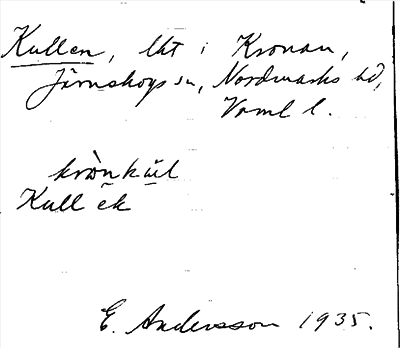 Kullen, lht i Kronan,
Järnskogs sn, Nordmarks hd,
Värml l.
Kull ek
E. Andersson 1935.